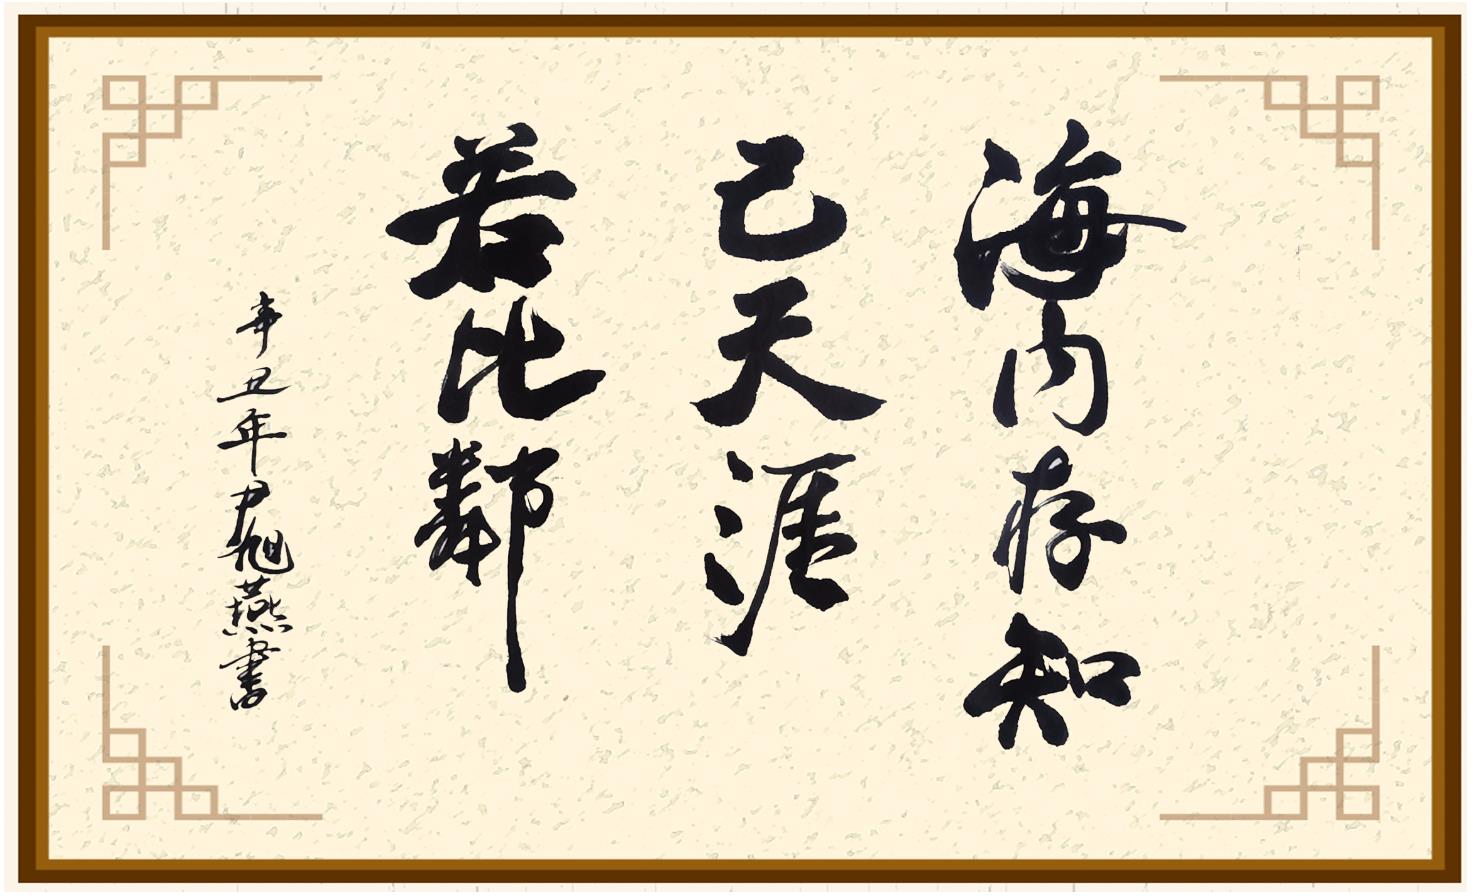 海内存知
己天涯
若比鄰
辛丑年尹旭燕書